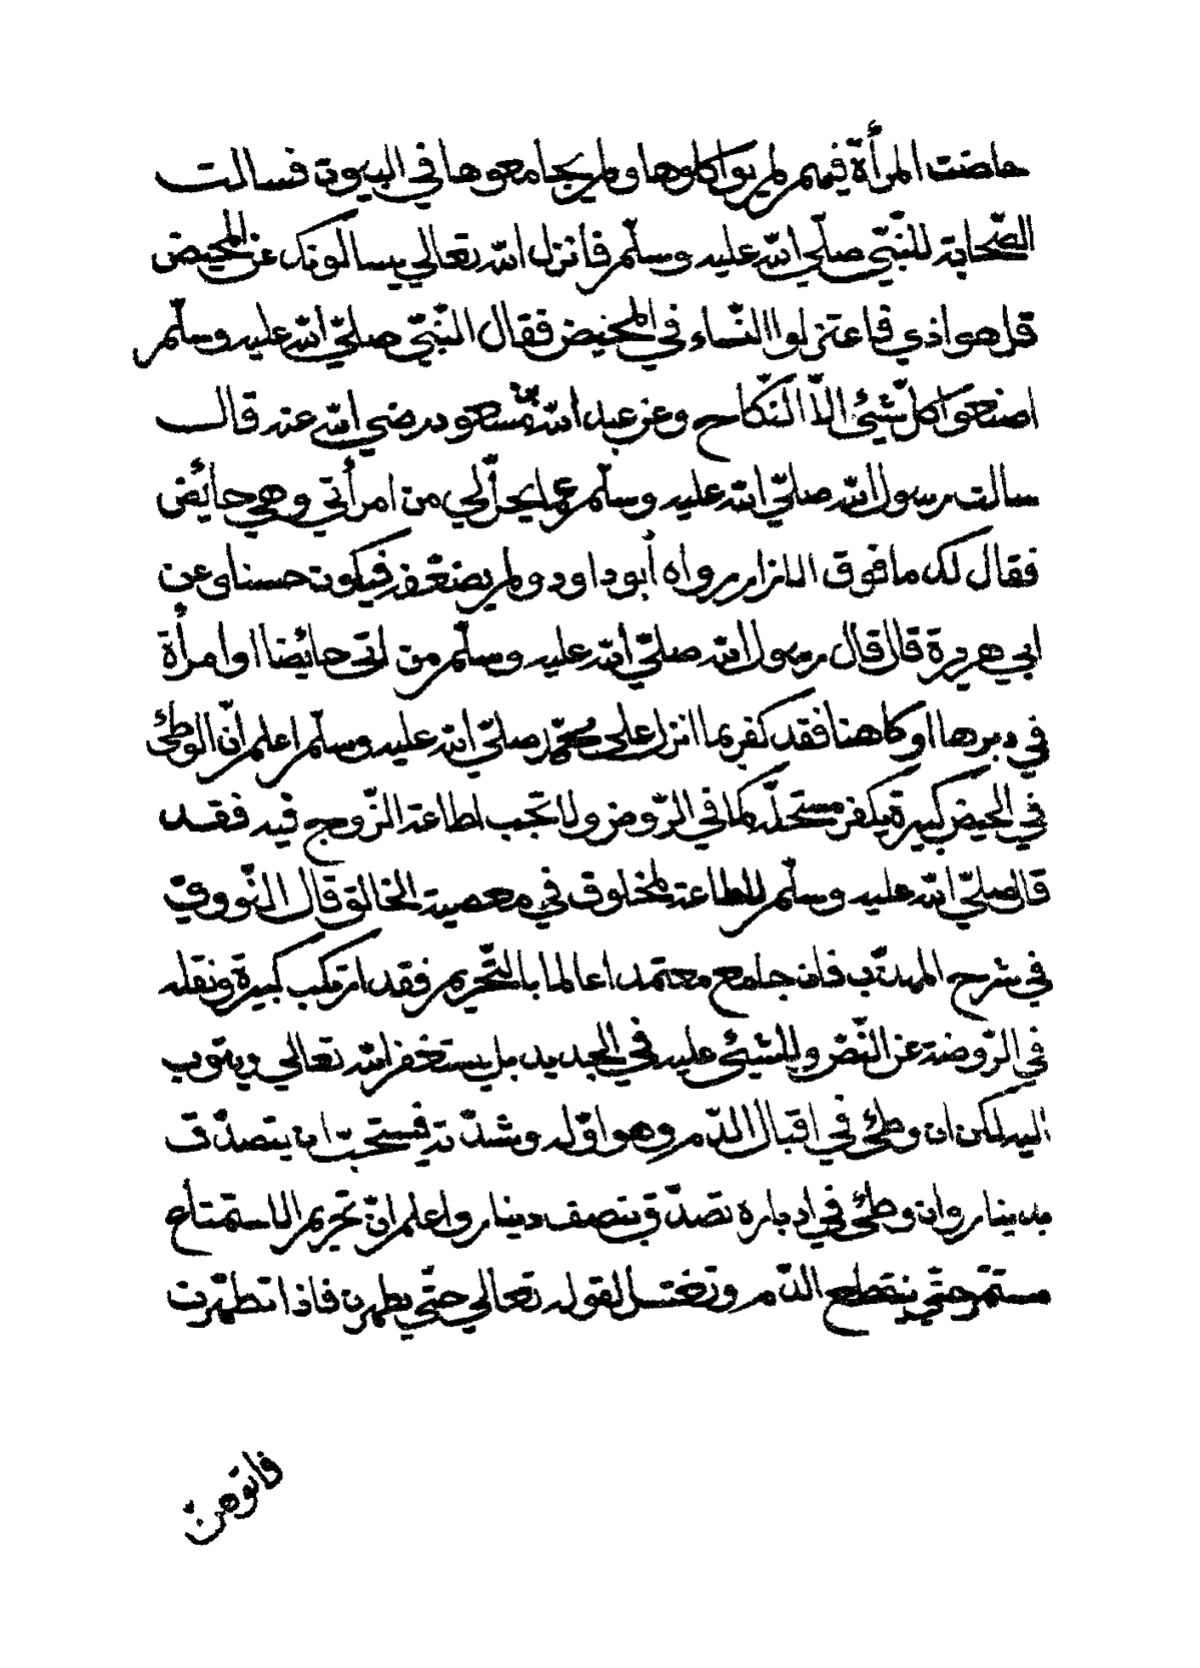 حاضت المرأة فيهم لم يواكلوها ولم يجامعوها في البيوت فسالت
الصّحابة للنّبيّ صلّي الله عليه وسلّم فأنزل الله تعالي يسالونك عن المحيض
قل هو اذي فاعتزلوا النّساء في المحيض فقال النّبيّ صلّي الله عليه وسلّم
اصنعوا كلّ شيئ الاّ النّكاح وعن عبد الله بن مسعود رضي الله عنه قال
سالت رسول الله صلّي الله عليه وسلّم عما يحلّ لي من امرأتي وهي حائض
فقال لك ما فوق الازار رواه أبو داود ولم يضعّفه فيكون حسنا وعن
ابي هريرة قال قال رسول الله صلّي الله عليه وسلّم من اتي حائضا او امرأة
في دبرها او كاهنا فقد كفر بما انزل علي محمّد صلّي الله عليه وسلّم اعلم انّ الوطئ
في الحيض كبيرة يكفر مستحلّه كما في الرّوض ولا تجب اطاعة الزّوج فيه فقد
قال صلّي الله عليه وسلّم لا طاعة لمخلوق في معصية الخالق قال النّوويّ
في شرح المهذّب فان جامع معتمدا عالما بالتّحريم فقد ارتكب كبيرة ونقله
في الرّوضة عن النّصّ ولا شيئ عليه في الجديد بل يستغفر الله تعالي ويتوب
اليه لكن ان وطئ في اقبال الدّم وهو اوّله وشدّته فيستحبّ ان يتصدّق
بدينار وان وطئ في ادباره تصدّق بنصف دينار واعلم انّ تحريم الاستمتاع
مستمرّ حتّي ينقطع الدّم وتغتسل لقوله تعالي حتّي يطهرن فاذا تطهّرن
فاتوهنّ